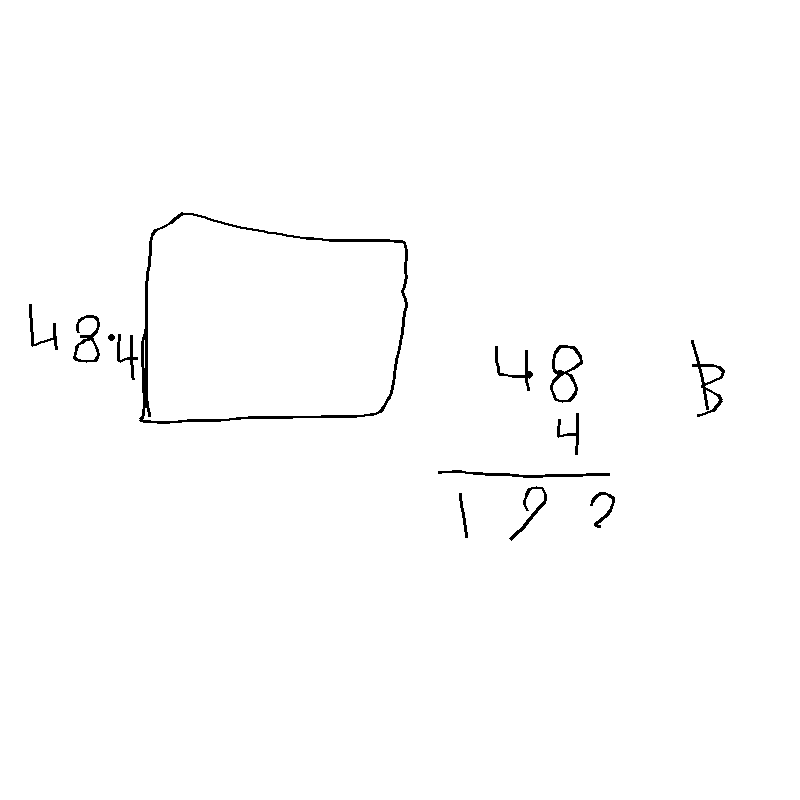 48·4
48 B
4
192